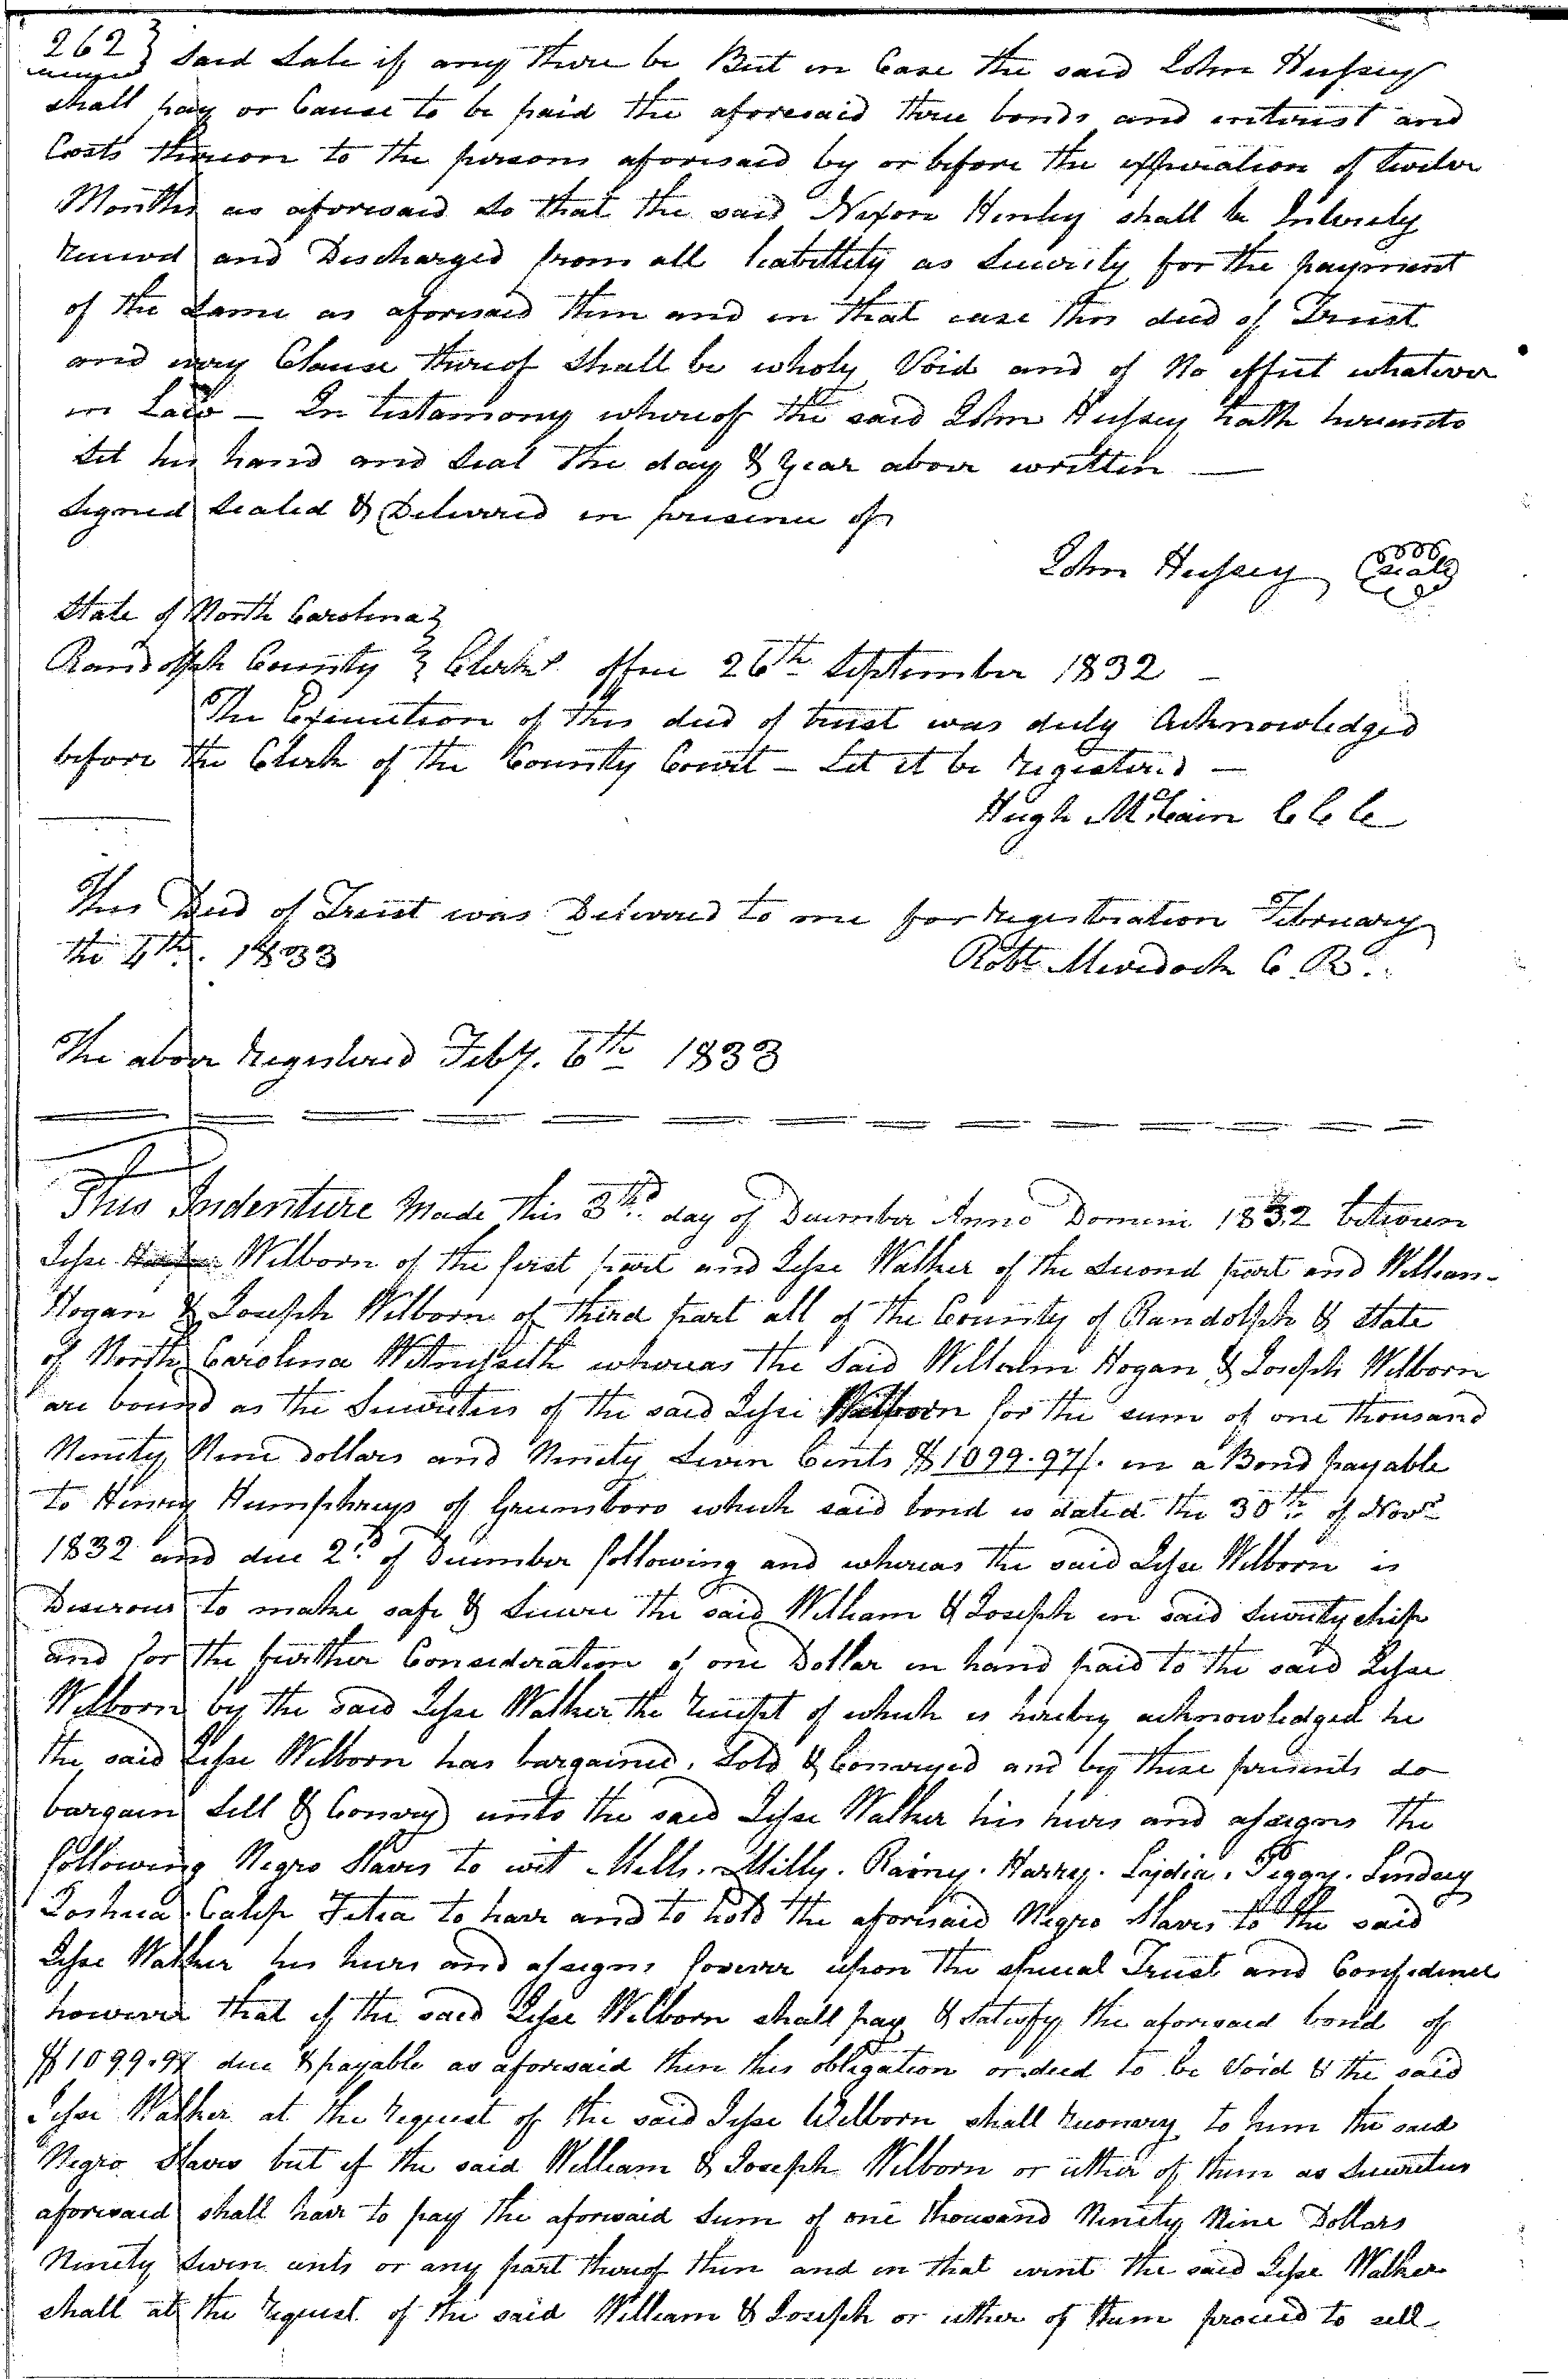 262 } Said Sale if any there be But in Case the said John Hussey
shall pay or Cause to be paid the aforesaid three bonds and interest and
Costs thereon to the persons aforesaid by or before the expiration of twelve
Months as aforesaid so that the said Nixon Henley shall be Intierely
and Discharged from all liabillety as Security for the payment
of the Same as aforesaid then and in that case this deed of Trust
and every Clause thereof Shall be wholy Void and of No effect whatever
in Law — In testamony whereof the said John Hussey hath hereunto
Set his hand and Seal the day & Year above written —
Signed Sealed & Delivered in presence of
John Hussey (seal)
State of North Carolina }
Randolph County } Clerks office 26th September 1832 —
The Execution of this deed of trust was duly Acknowledged
before the Clerk of the County Court — Let it be registered —
Hugh McCain C C C
This Deed of Trust was Delivered to me for registration February
the 4th. 1833
Robt. Murdock C. R.
The above Registered Feby. 6th 1833
This Indenture Made this 3rd. day of December Anno Domini 1832 between
Jesse Welborn of the first part and Jesse Walker of the Second part and William
Hogan & Joseph Welborn of third part all of the County of Randolph & State
of North Carolina Witnesseth whereas the Said William Hogan & Joseph Welborn
are bound as the Securities of the said Jesse Welborn for the sum of one thousand
Ninety Nine dollars and Ninety Seven Cents $1099.97/. in a Bond payable
to Henry Humphreys of Greensboro which said bond is dated the 30th. of Novr
1832 and due 2d. of December following and whereas the said Jesse Welborn is
Desirous to make safe & Secure the said William & Joseph in said Suretyship
and for the further Consideration of one Dollar in hand paid to the said Jesse
Welborn by the said Jesse Walker the receipt of which is hereby acknowledged he
the said Jesse Welborn has bargained, Sold & Conveyed and by these presents do
bargain Sell & Convey unto the said Jesse Walker his heirs and assigns the
following Negro Slaves to wit Mills. Milly. Rainy. Harry. Lydia. Peggy. Lindsey
Joshua. Calep to have and to hold the aforesaid Negro Slaves to the said
Jesse Walker his heirs and assigns forever upon the special Trust and Confidence
however that if the said Jesse Welborn shall pay & Satisfy the aforesaid bond of
$1099.97 due & payable as aforesaid then this obligation or deed to be Void & the said
Jesse Walker at the request of the said Jesse Welborn shall reconvey to him the said
Negro Slaves but if the said William & Joseph Welborn or either of them as Securities
aforesaid shall have to pay the aforesaid Sum of one thousand Ninety Nine Dollars
Ninety Seven cents or any part thereof then and in that event the said Jesse Walker
shall at the request of the said William & Joseph or either of them proceed to sell